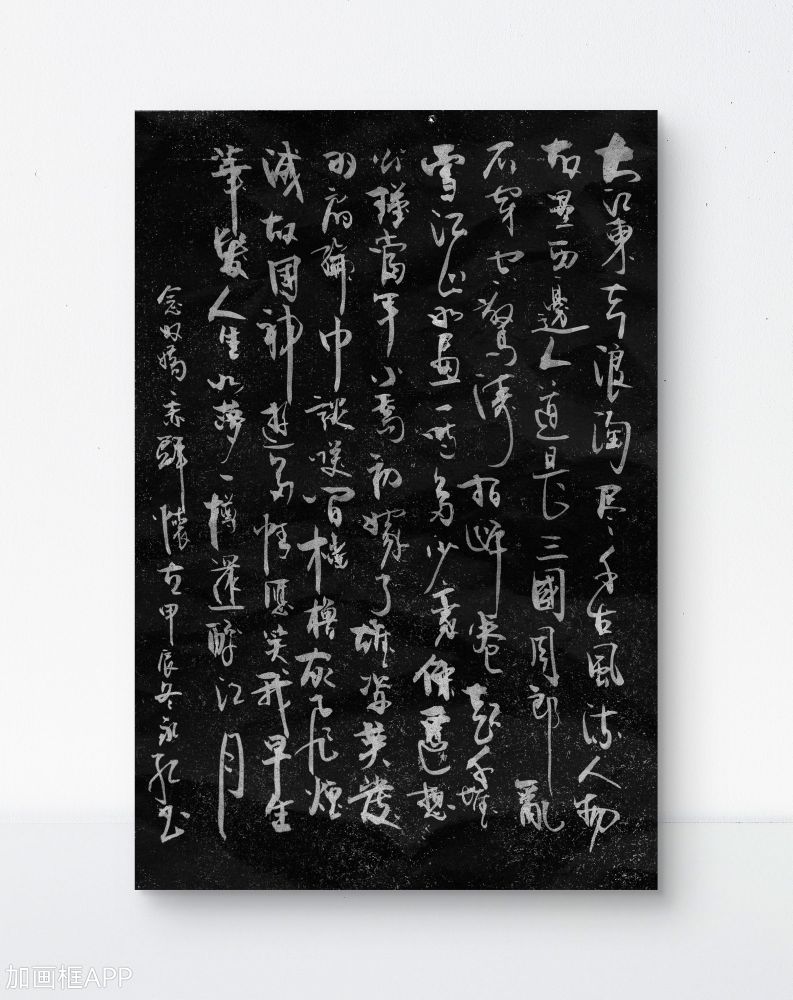 大江東去浪淘尽千古風流人物
故壘西邊人道是三國周郎亂
石穿空驚濤拍岸卷起千堆
雪江山如畫一時多少豪傑遥想
公瑾當年小喬初嫁了雄姿英發
羽扇綸巾談笑間檣櫓灰飛煙
滅故國神遊多情應笑我早生
華髮人生如夢一樽還酹江月
念奴嬌赤壁懷古甲辰冬永书
加画框APP